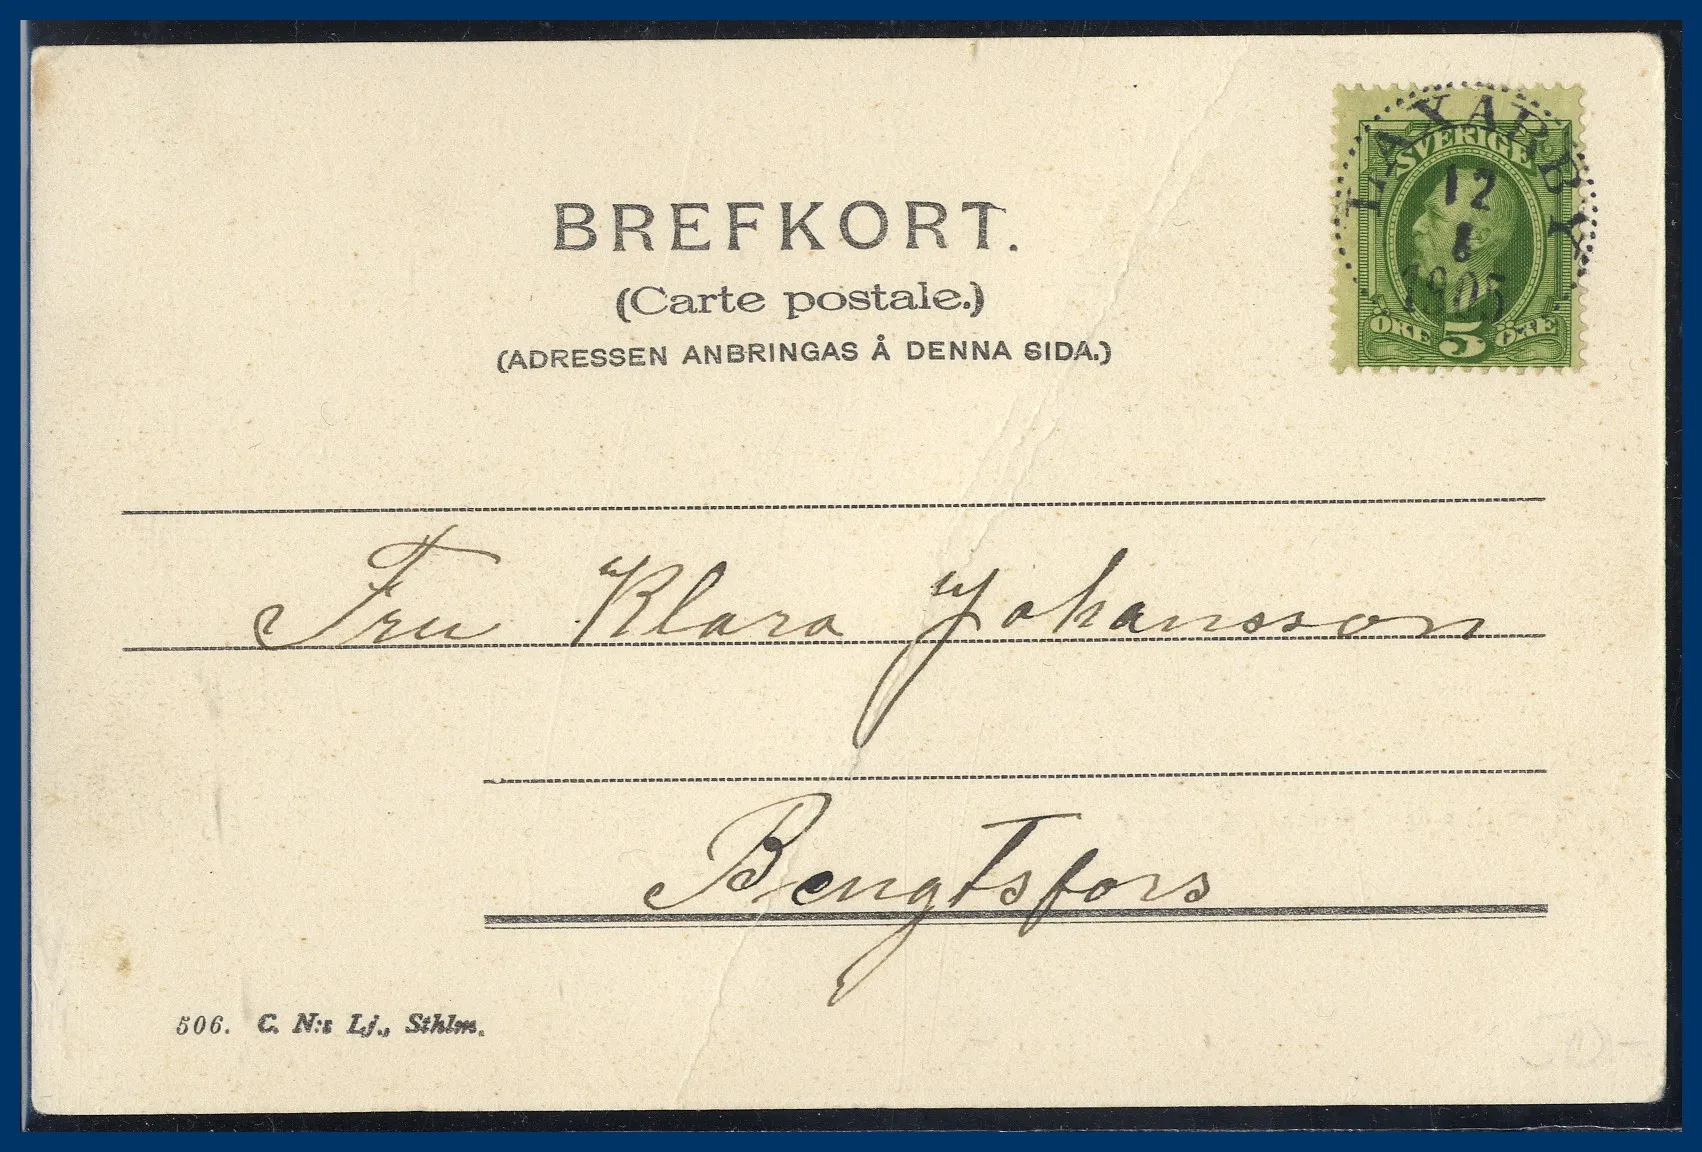 BREFKORT.
(Carte postale.)
(ADRESSEN ANBRINGAS Å DENNA SIDA.)
LAXARBY
12
1905
SVERIGE
ÖRE 5 ÖRE
Fru Klara Johansson
Bengtsfors
506. C. N:s Lj., Sthlm.